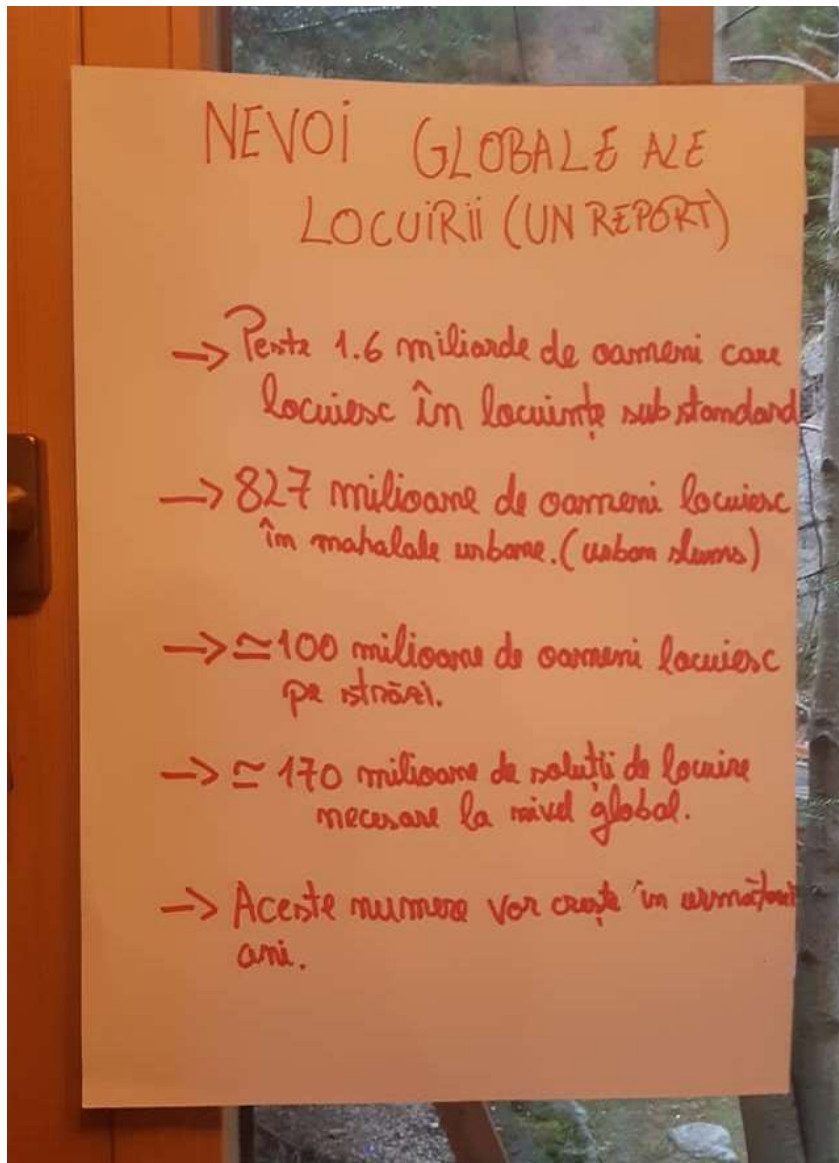 NEVOI GLOBALE ALE
LOCUIRII (UN REPORT)
→ Peste 1.6 miliarde de oameni care
locuiesc în locuințe substandard
→ 827 milioane de oameni locuiesc
în mahalale urbane. (urban slums)
→ ≃100 milioane de oameni locuiesc
pe străzi.
→ ≃ 170 milioane de soluții de locuire
necesare la nivel global.
→ Aceste numere vor crește în următorii
ani.